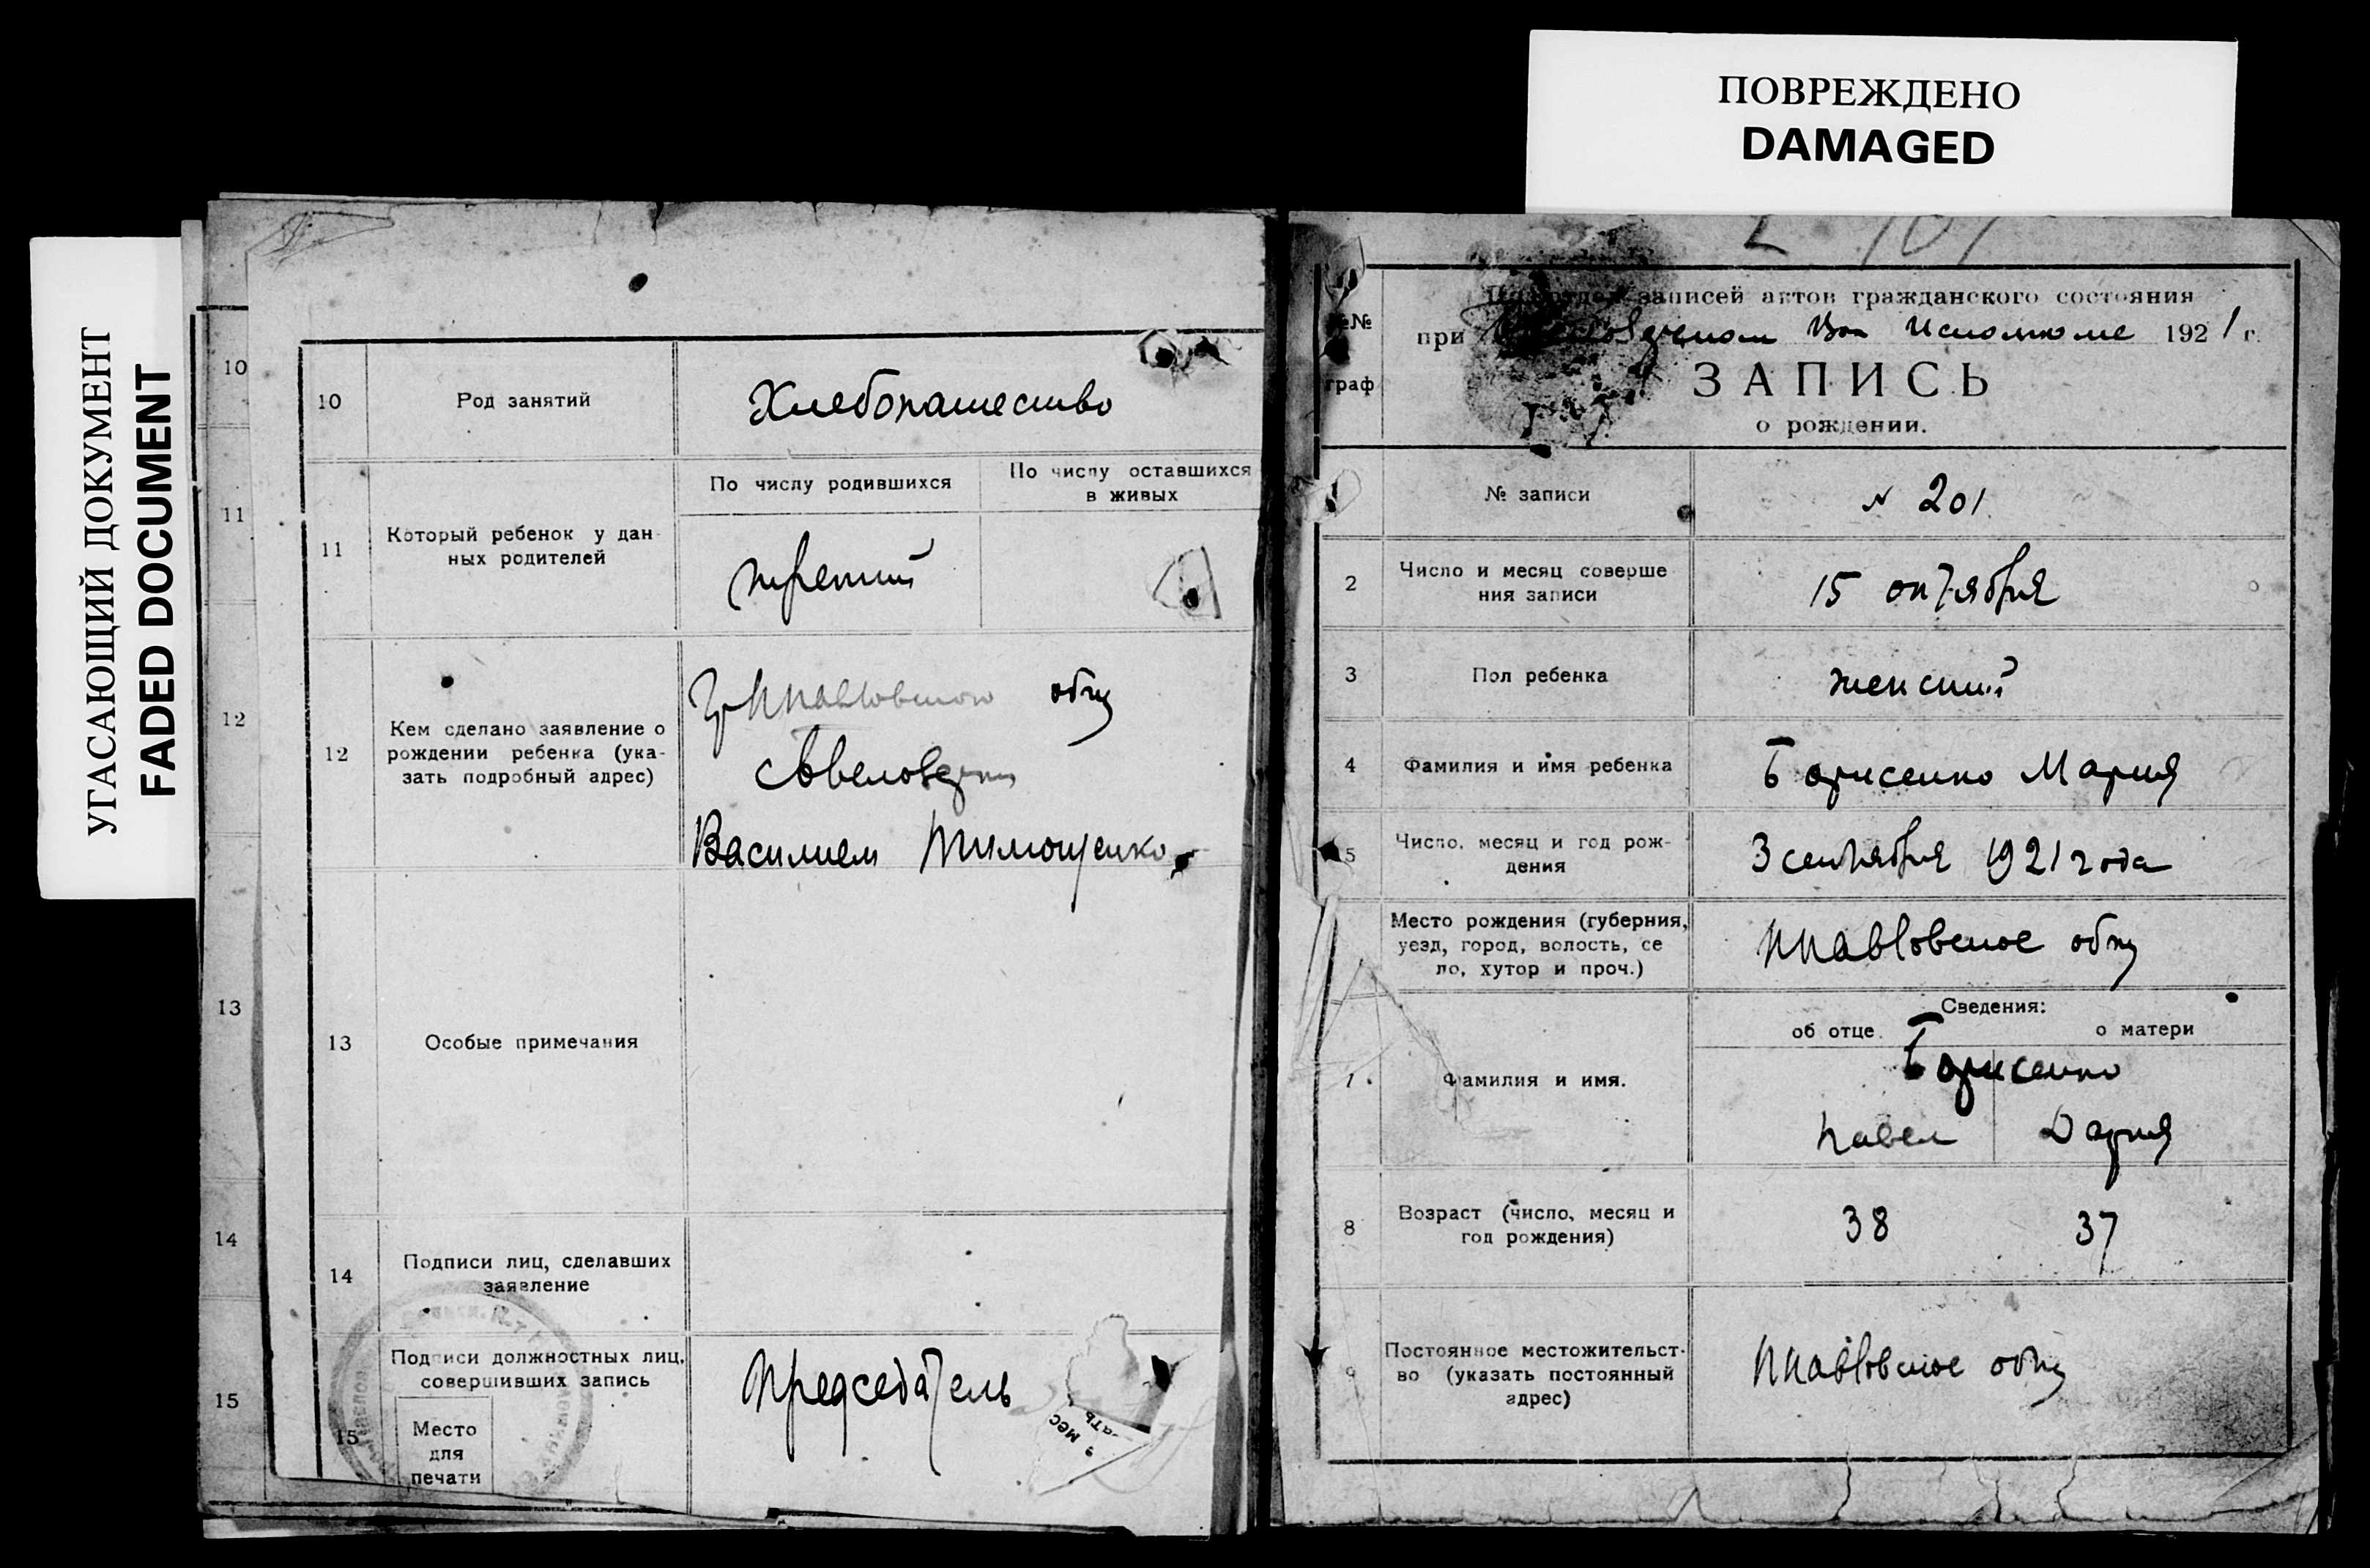 УГАСАЮЩИЙ ДОКУМЕНТ
FADED DOCUMENT
ПОВРЕЖДЕНО
DAMAGED
10
11
12
13
14
15
10
Род занятий
Хлебопашество
11
Который ребенок у дан-
ных родителей
По числу родившихся
По числу оставшихся
в живых
третий
12
Кем сделано заявление о
рождении ребенка (ука-
зать подробный адрес)
общ
Василием Тимощенко
13
Особые примечания
14
Подписи лиц, сделавших
заявление
15
Подписи должностных лиц,
совершивших запись
Место
для
печати
Председатель
записей актов гражданского состояния
при Вол Исполкоме 1921 г.
№№
граф
ЗАПИСЬ
о рождении.
№ записи
№ 201
2
Число и месяц соверше
ния записи
15 октября
3
Пол ребенка
женский
4
Фамилия и имя ребенка
Борисенко Мария
5
Число, месяц и год рож-
дения
3 сентября 1921 года
Место рождения (губерния,
уезд, город, волость, се
ло, хутор и проч.)
общ
Сведения:
об отце.
о матери
Фамилия и имя.
Борисенко
Павел
Дария
8
Возраст (число, месяц и
год рождения)
38
37
9
Постоянное местожительст-
во (указать постоянный
адрес)
общ